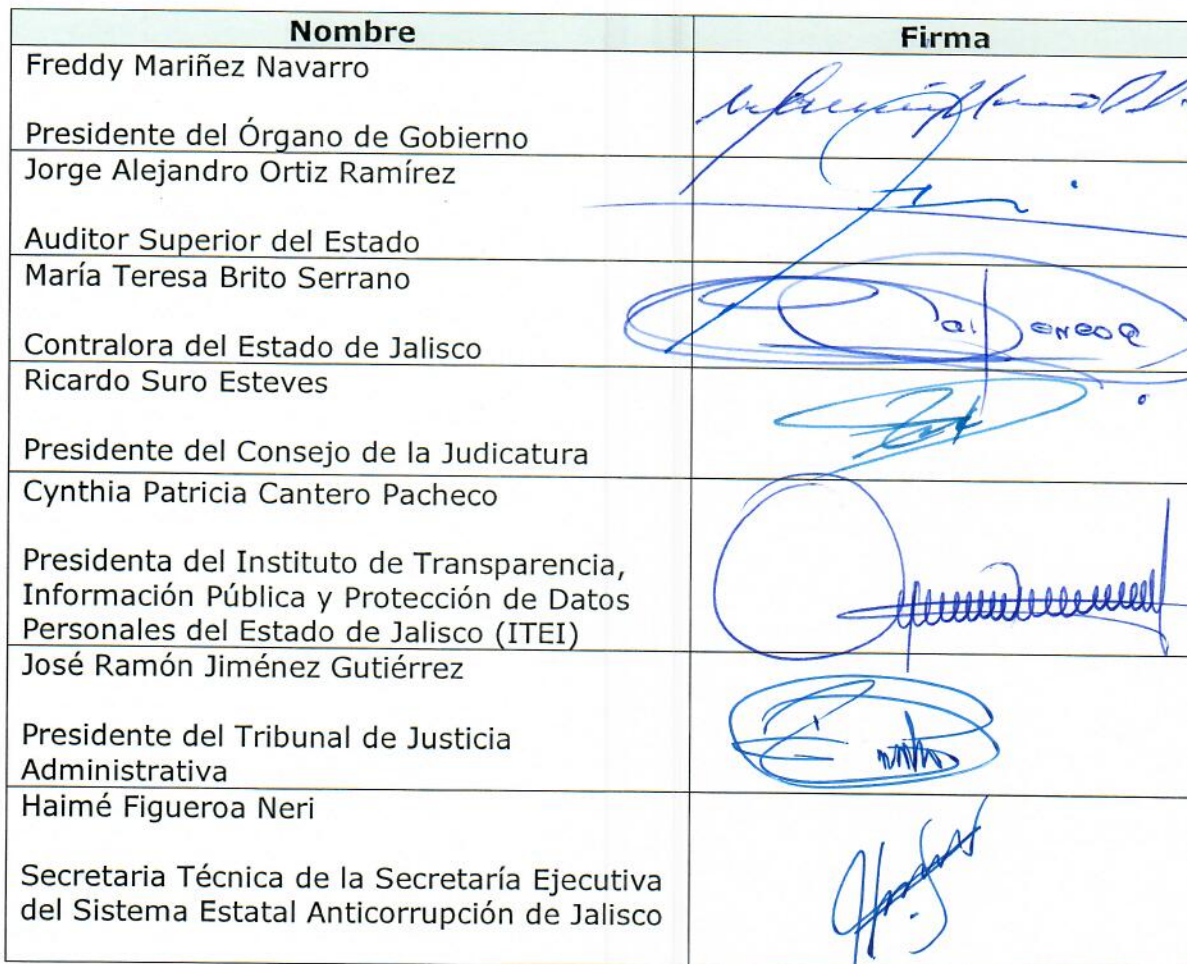 Nombre
Firma
Freddy Mariñez Navarro
Presidente del Órgano de Gobierno
Jorge Alejandro Ortiz Ramírez
Auditor Superior del Estado
María Teresa Brito Serrano
Contralora del Estado de Jalisco
Ricardo Suro Esteves
Presidente del Consejo de la Judicatura
Cynthia Patricia Cantero Pacheco
Presidenta del Instituto de Transparencia,
Información Pública y Protección de Datos
Personales del Estado de Jalisco (ITEI)
José Ramón Jiménez Gutiérrez
Presidente del Tribunal de Justicia
Administrativa
Haimé Figueroa Neri
Secretaria Técnica de la Secretaría Ejecutiva
del Sistema Estatal Anticorrupción de Jalisco